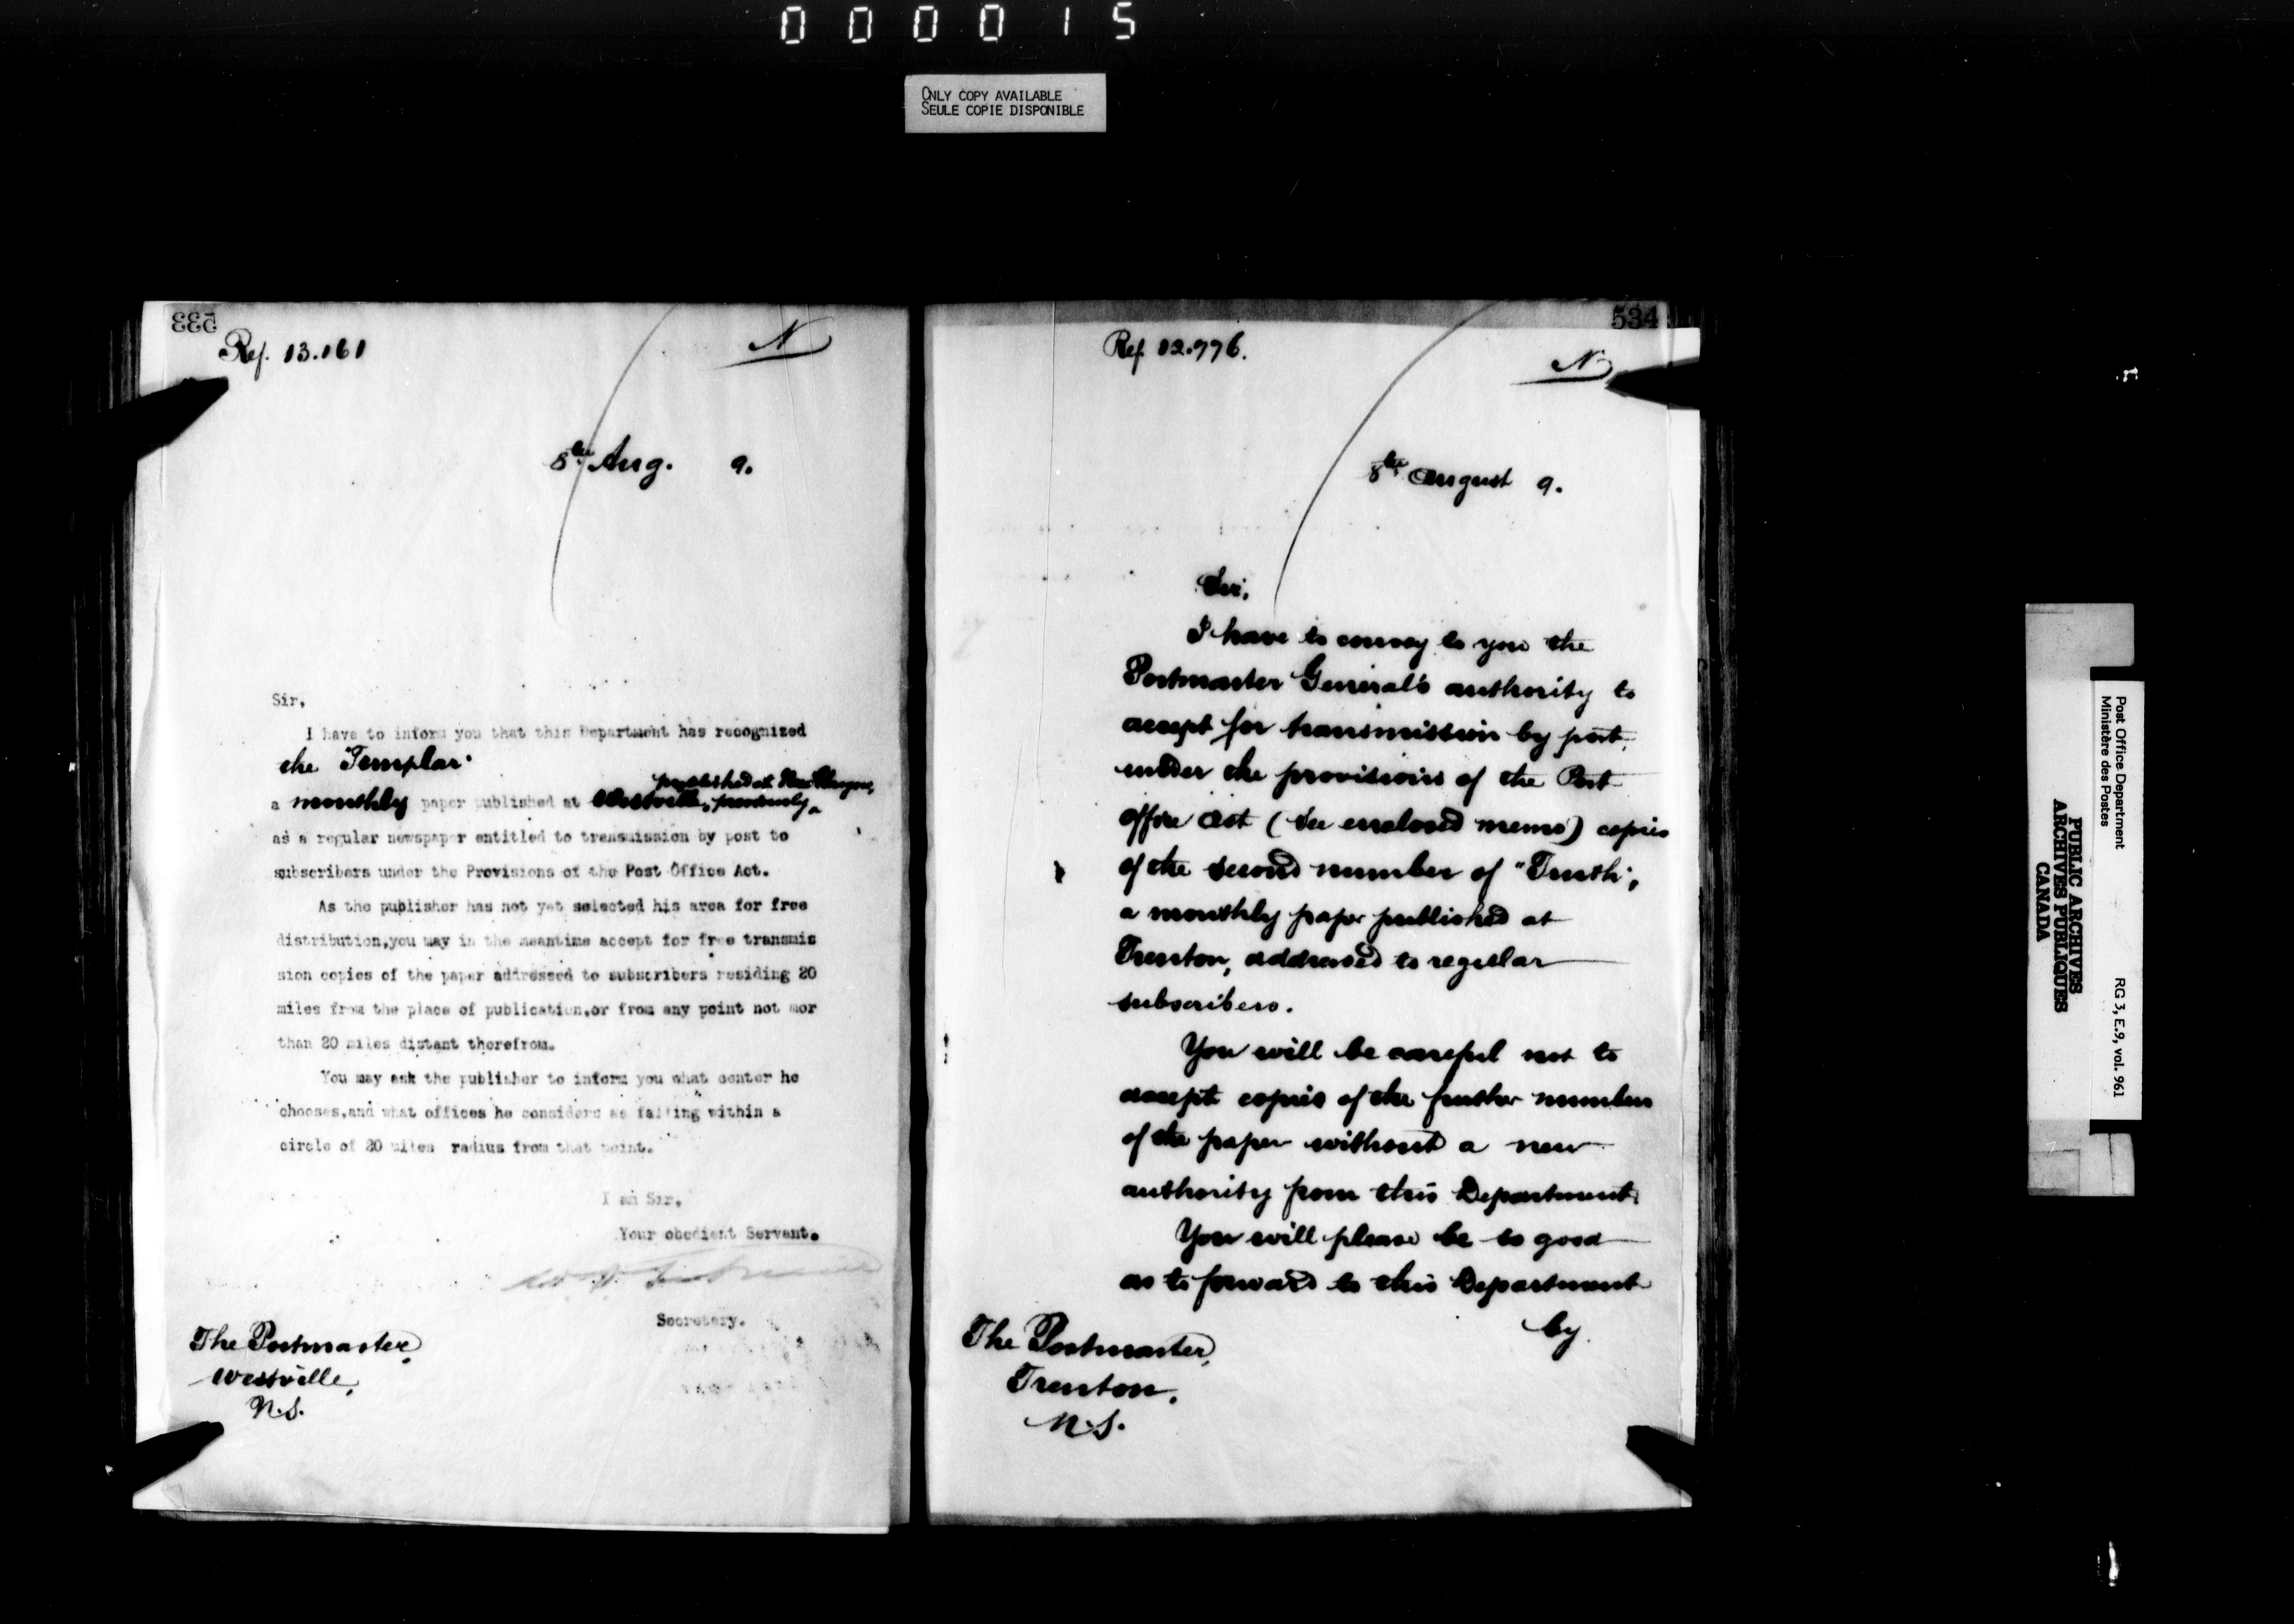 000015
ONLY COPY AVAILABLE
SEULE COPIE DISPONIBLE
533
Ref. 13.161
N
8th Aug. 9.
Sir,
I have to inform you that this Department has recognized
the "Templar"
published at New Glasgow,
a monthly paper published at Westville, previously
as a regular newspaper entitled to transmission by post to
subscribers under the Provisions of the Post Office Act.
As the publisher has not yet selected his area for free
distribution,you may in the meantime accept for free transmis
sion copies of the paper addressed to subscribers residing 20
miles from the place of publication,or from any point not mor
than 20 miles distant therefrom.
You may ask the publisher to inform you what center he
chooses,and what offices he considers as falling within a
circle of 20 miles radius from that point.
I am Sir,
Your obedient Servant.
Secretary.
The Postmaster,
Westville,
N.S.
534
Ref. 12.976.
N
8th August 9.
Sir,
I have to convey to you the
Postmaster General's authority to
accept for transmission by post,
under the provisions of the Post
Office Act (see enclosed memo) copies
of the second number of "Truth",
a monthly paper published at
Trenton, addressed to regular
subscribers.
You will be careful not to
accept copies of the further numbers
of the paper without a new
authority from this Department.
You will please be so good
as to forward to this Department
by
The Postmaster,
Trenton,
N.S.
Post Office Department
Ministère des Postes
RG 3, E.9, vol. 961
PUBLIC ARCHIVES
ARCHIVES PUBLIQUES
CANADA